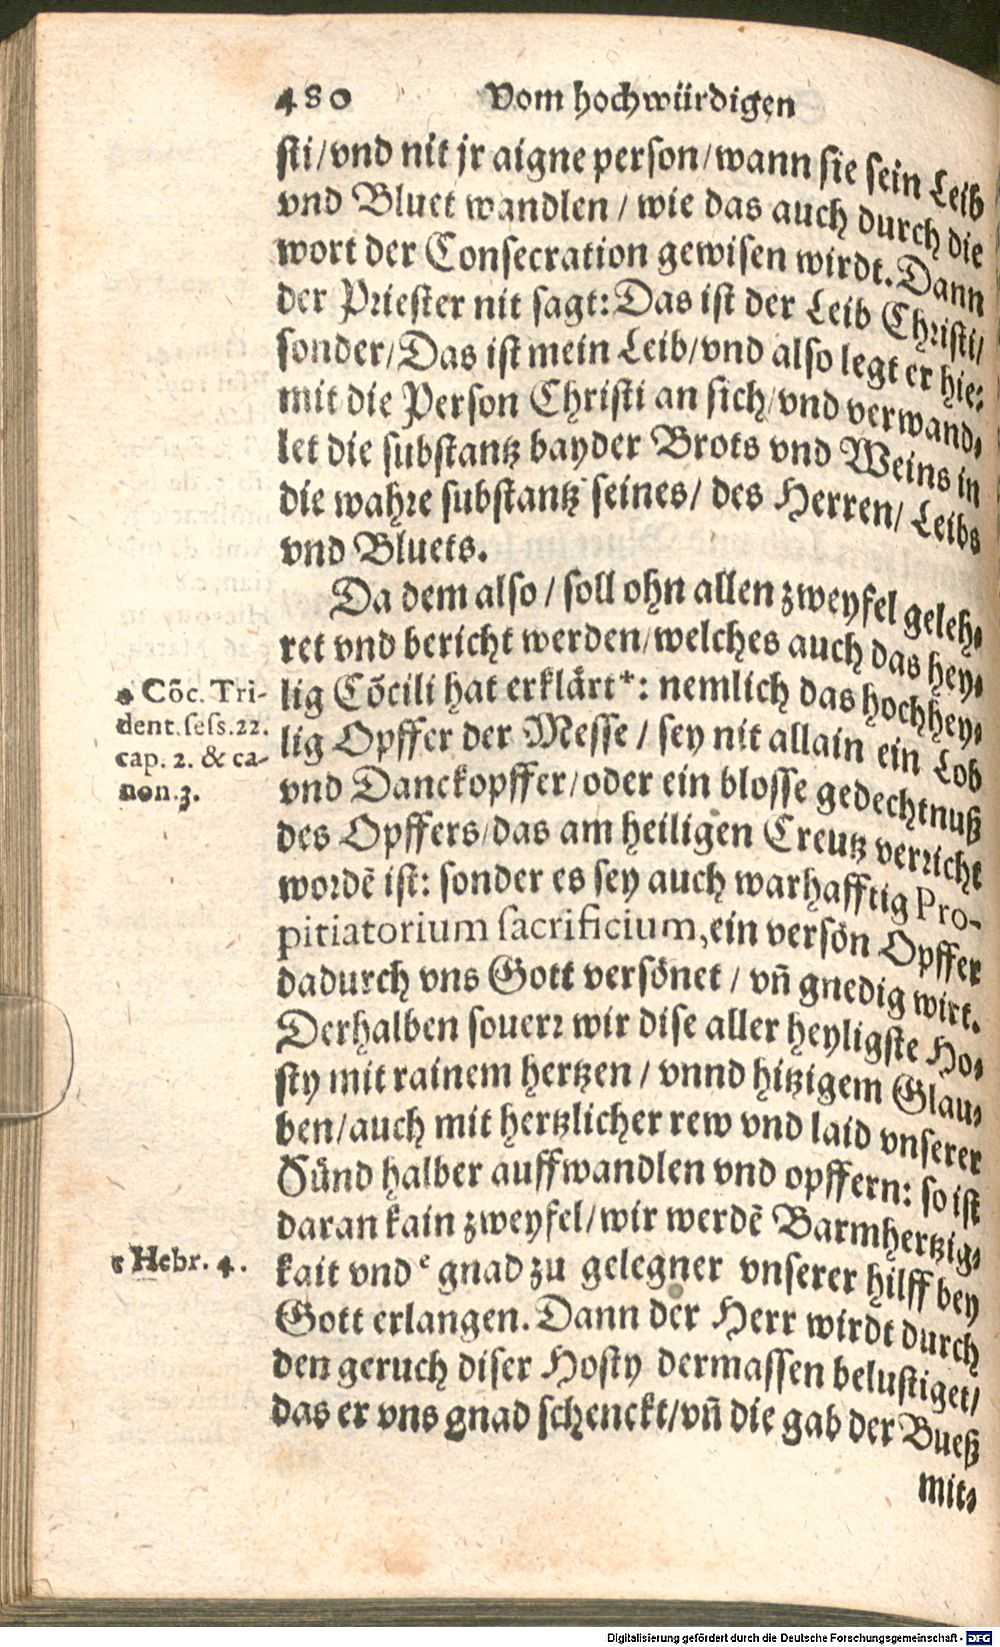 480 Vom hochwürdigen
sti/vnd nit jr aigne person/wann sie sein Leib
vnd Bluet wandlen / wie das auch durch die
wort der Consecration gewisen wirdt. Dann
der Priester nit sagt: Das ist der Leib Christi/
sonder/Das ist mein Leib/vnd also legt er hie⸗
mit die Person Christi an sich/vnd verwand⸗
let die substantz bayder Brots vnd Weins in
die wahre substantz seines/ des Herren/ Leibs
vnd Bluets.
Da dem also / soll ohn allen zweyfel geleh⸗
ret vnd bericht werden/welches auch das hey⸗
lig Cõcili hat erklärt*: nemlich das hochhey⸗
lig Opffer der Messe / sey nit allain ein Lob
vnd Danckopffer/oder ein blosse gedechtnuß
des Opffers/das am heiligen Creutz verricht
wordẽ ist: sonder es sey auch warhafftig Pro-
pitiatorium sacrificium, ein versön Opffer
dadurch vns Gott versönet / vñ gnedig wirt.
Derhalben souerr wir dise aller heyligste Ho⸗
sty mit rainem hertzen / vnnd hitzigem Glau⸗
ben/auch mit hertzlicher rew vnd laid vnserer
Sünd halber auffwandlen vnd opffern: so ist
daran kain zweyfel/wir werdẽ Barmhertzig⸗
kait vnd e gnad zu gelegner vnserer hilff bey
Gott erlangen. Dann der Herr wirdt durch
den geruch diser Hosty dermassen belustiget/
das er vns gnad schenckt/vñ die gab der Bueß
mit⸗
* Cõc. Tri-
dent. sess. 22.
cap. 2. & ca-
non. 3.
e Hebr. 4.
Digitalisierung gefördert durch die Deutsche Forschungsgemeinschaft - DFG